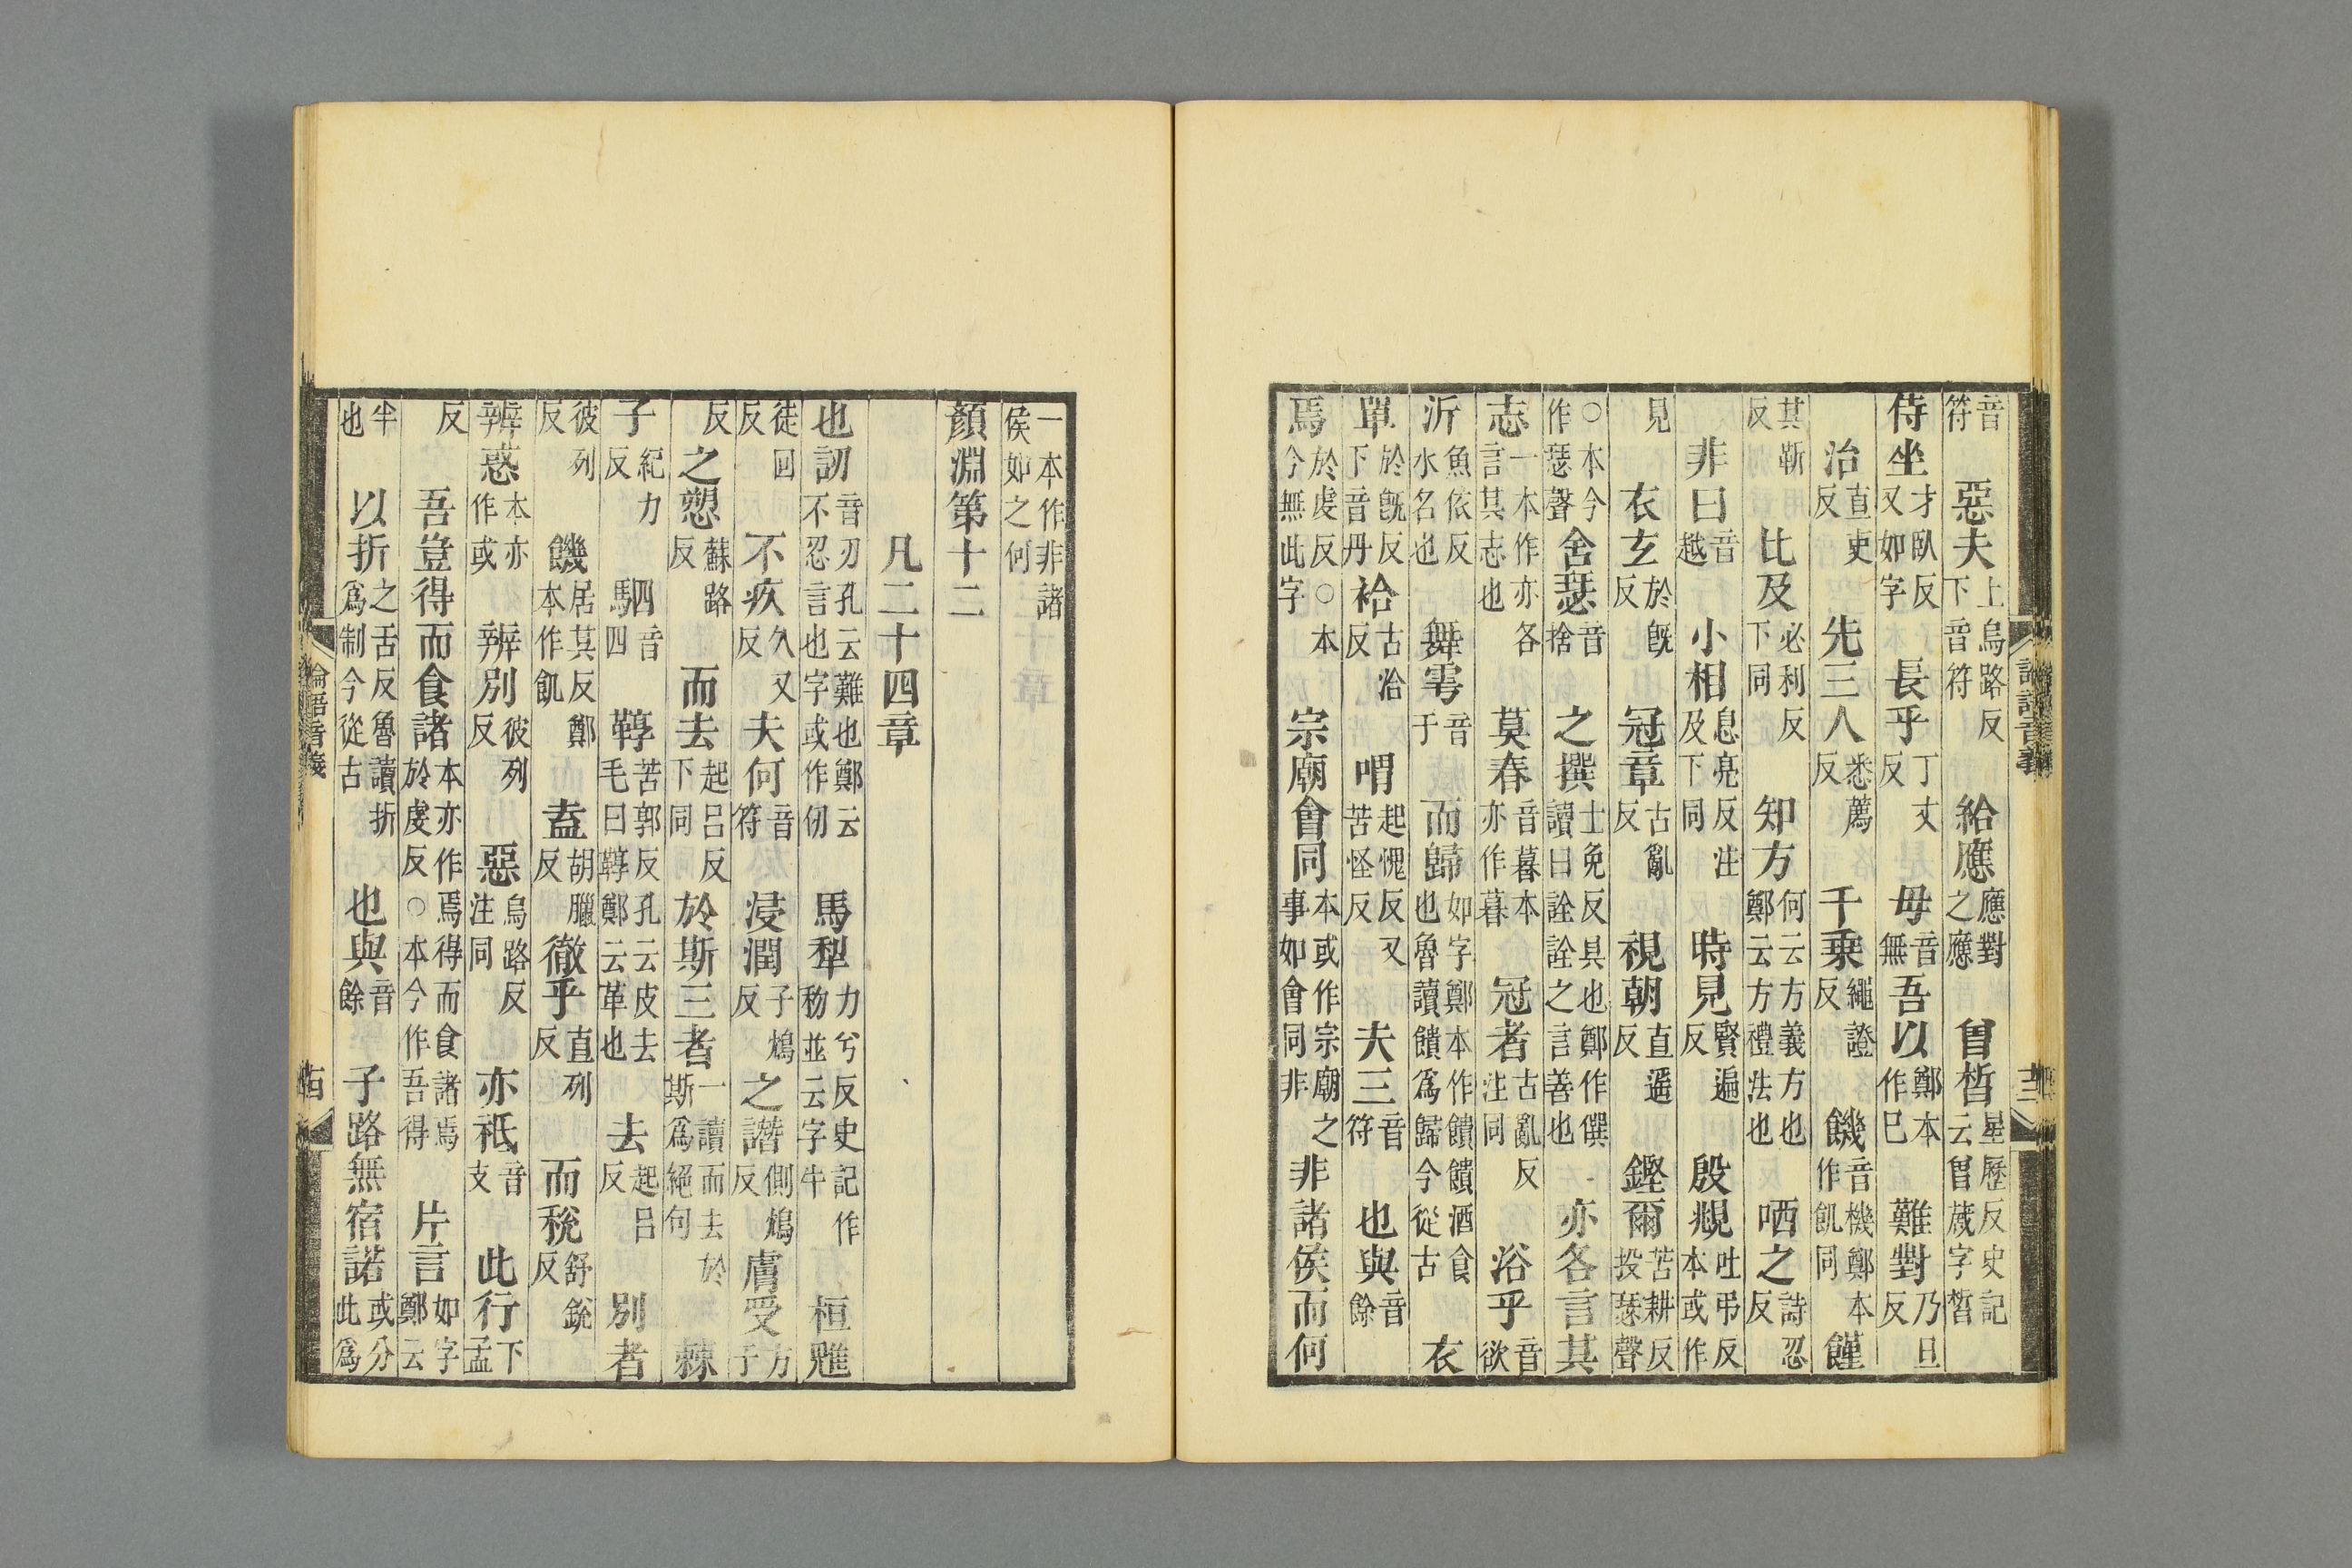 論語音義 十三
音符 惡夫 上烏路反下音符 給應 應對之應 曾晳 星歷反史記云曾蒧字晳
侍坐 才臥反又如字 長乎 丁丈反 毋 音無 吾以 鄭本作已 難對 乃旦反
治 直吏反 先三人 悉薦反 千乗 繩證反 饑 音機鄭本作飢同 饉
其靳反 比及 必利反下同 知方 何云方義方也鄭云方禮法也 哂之 詩忍反
非曰 音越 小相 息亮反注及下同 時見 賢遍反 殷覜 吐弔反本或作
見 衣玄 於旣反 冠章 古亂反 視朝 直遥反 鏗爾 苦耕反投瑟聲
○本今作瑟聲 舍瑟 音捨 之撰 士免反具也鄭作僎讀曰詮詮之言善也 亦各言其
志 一本作亦各言其志也 莫春 音暮本亦作暮 冠者 古亂反注同 浴乎 音欲
沂 魚依反水名也 舞雩 音于 而歸 如字鄭本作饋饋酒食也魯讀饋爲歸今從古 衣
單 於旣反下音丹 袷 古洽反 喟 起愧反又苦怪反 夫三 音符 也與 音餘
焉 於虔反○本今無此字 宗廟會同 本或作宗廟之事如會同非 非諸侯而何
一本作非諸侯如之何
顏淵第十二
凡二十四章
也訒 音刃孔云難也鄭云不忍言也字或作仞 馬犁 力兮反史記作秎並云字牛 桓魋
徒回反 不疚 久又反 夫何 音符 浸潤 子鴆反 之譖 側鴆反 膚受 方于
反 之愬 蘇路反 而去 起呂反下同 於斯三者 一讀而去於斯爲絕句 棘
子 紀力反 駟 音四 鞟 苦郭反孔云皮去毛曰鞟鄭云革也 去 起呂反 別者
彼列反 饑 居其反鄭本作飢 盍 胡臘反 徹乎 直列反 而稅 舒銳反
辨惑 本亦作或 辨別 彼列反 惡 烏路反注同 亦祇 音支 此行 下孟
反 吾豈得而食諸 本亦作焉得而食諸焉於虔反○本今作吾得 片言 如字鄭云
半也 以折 之舌反魯讀折爲制今從古 也與 音餘 子路無宿諾 或分此爲
論語音義 十四